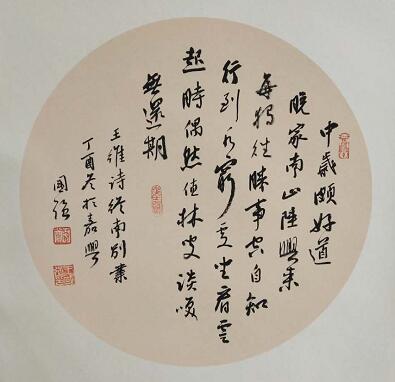 中歲頗好道
晚家南山陲興來
每獨往勝事空自知
行到水窮處坐看雲
起時偶然值林叟談笑
無還期
王維詩終南別業
丁酉冬於嘉興
國強